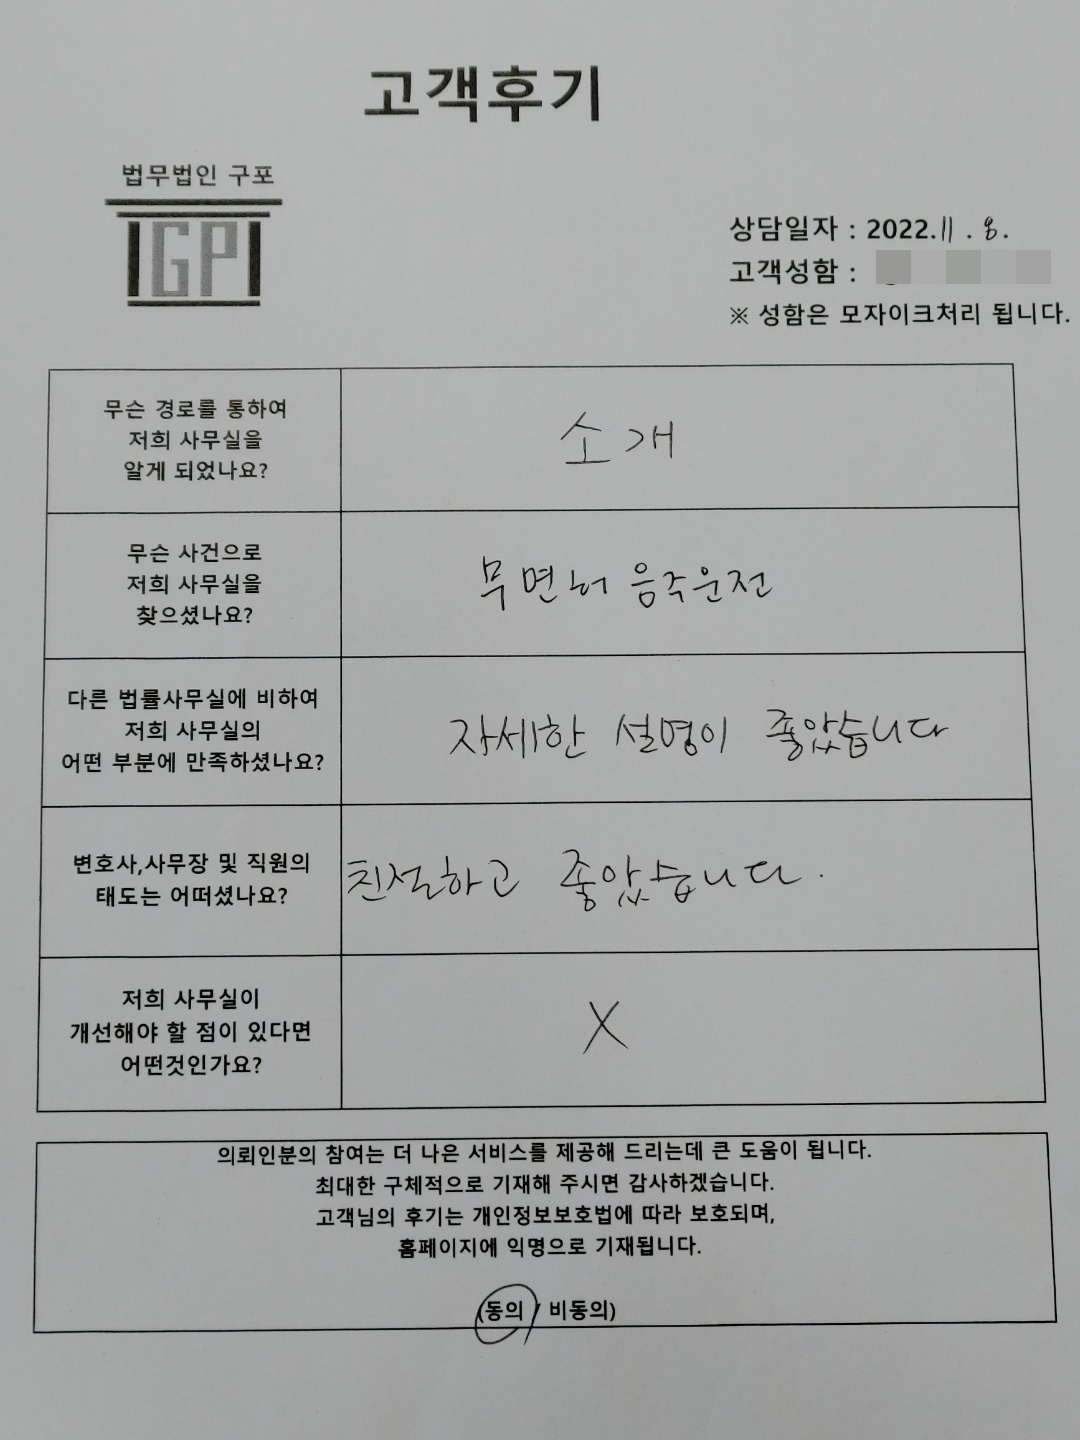 고객후기
법무법인 구포
GP
상담일자 : 2022.11.8.
고객성함 :
※ 성함은 모자이크처리 됩니다.
무슨 경로를 통하여
저희 사무실을
알게 되었나요?
소개
무슨 사건으로
저희 사무실을
찾으셨나요?
무면허 음주운전
다른 법률사무실에 비하여
저희 사무실의
어떤 부분에 만족하셨나요?
자세한 설명이 좋았습니다
변호사,사무장 및 직원의
태도는 어떠셨나요?
친절하고 좋았습니다.
저희 사무실이
개선해야 할 점이 있다면
어떤것인가요?
X
의뢰인분의 참여는 더 나은 서비스를 제공해 드리는데 큰 도움이 됩니다.
최대한 구체적으로 기재해 주시면 감사하겠습니다.
고객님의 후기는 개인정보보호법에 따라 보호되며,
홈페이지에 익명으로 기재됩니다.
(동의 / 비동의)